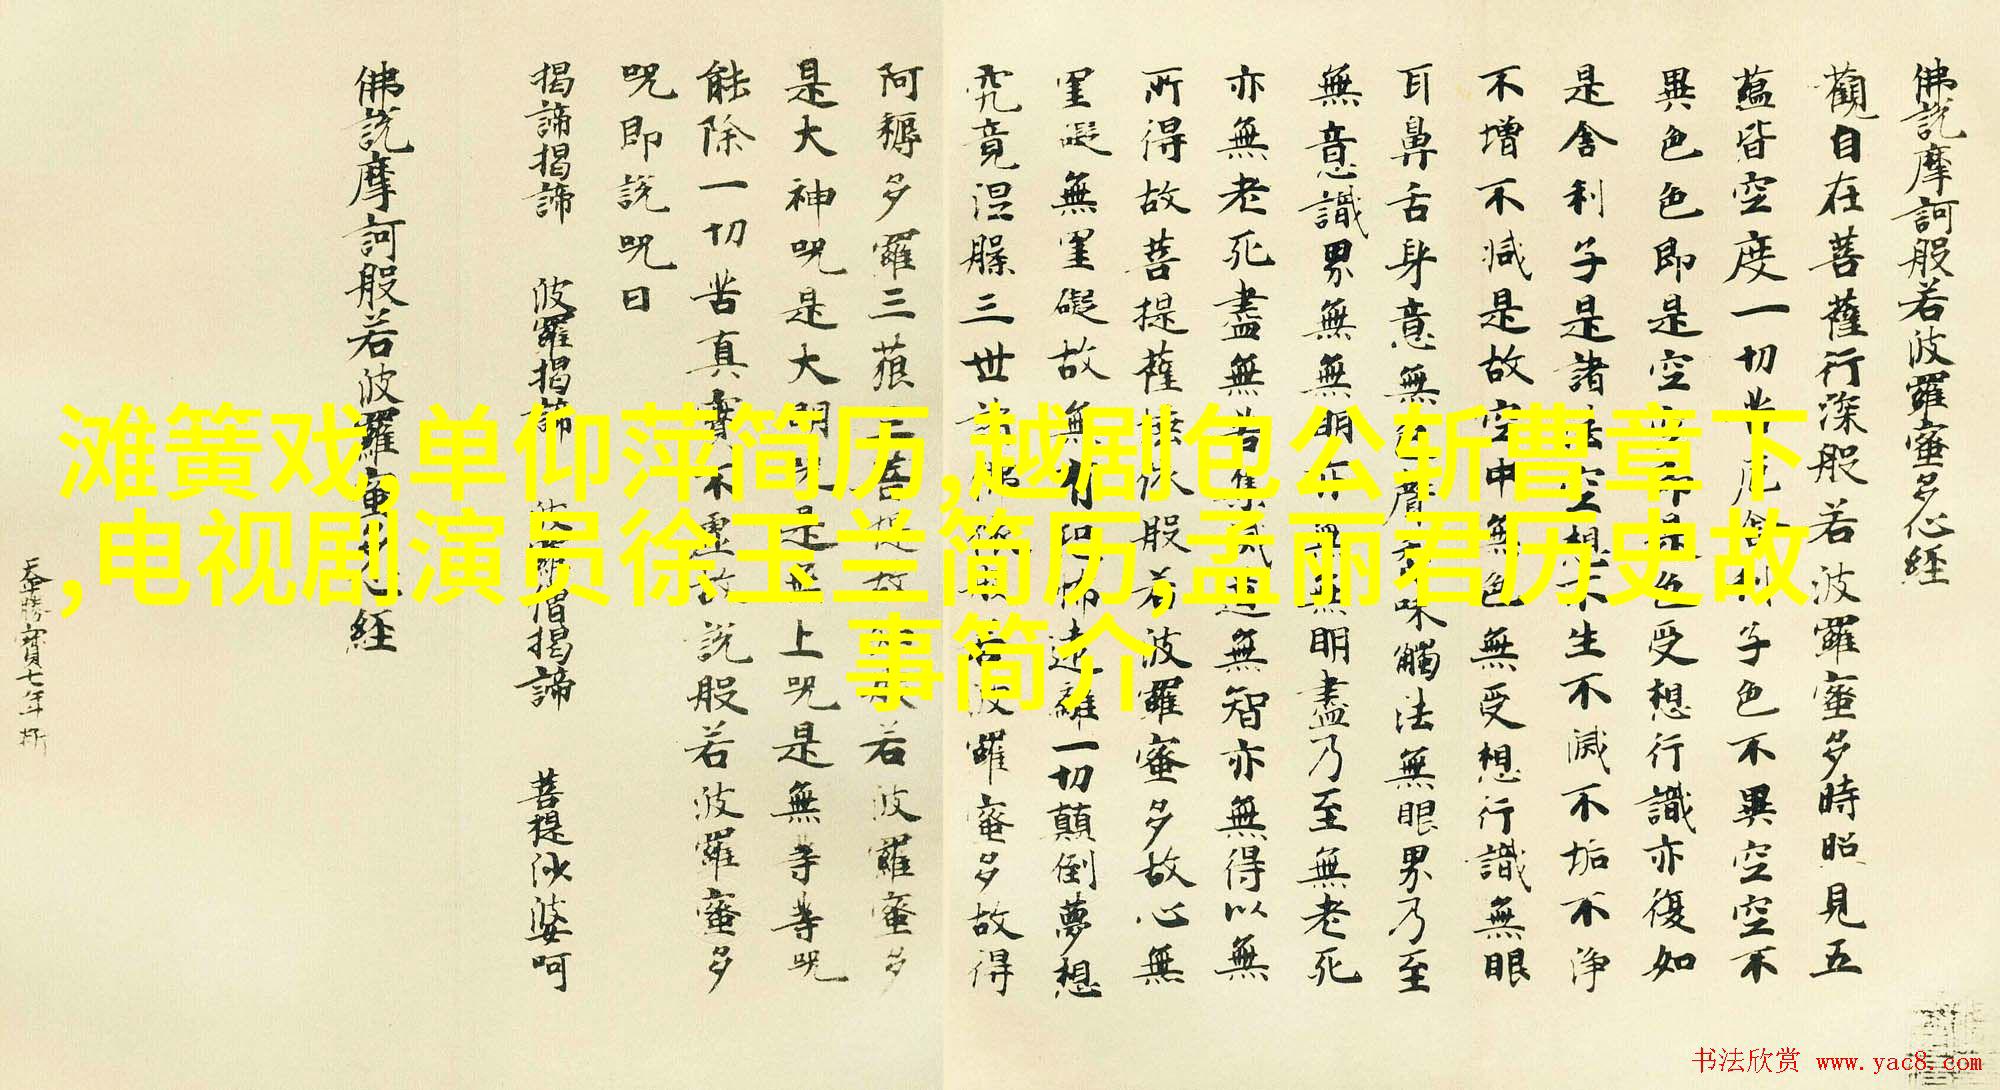 佛說摩訶般若波羅蜜多心經
觀自在菩薩行深般若波羅蜜多時照見五
蘊皆空度一切苦厄舍利子色不異空空不
異色色即是空空即是色受想行識亦復如
是舍利子是諸法空想不生不滅不垢不淨
不增不減是故空中無色無受想行識無眼
耳鼻舌身意無色聲香味觸法無眼界乃至
無意識界無無明亦無無明盡乃至無老死
亦無老死盡無苦集滅道無智亦無得以無
所得故菩提薩埵依般若波羅蜜多故心無
罣礙無罣礙故無有恐怖遠離一切顛倒夢想
究竟涅槃三世諸佛依般若波羅蜜多故得
阿耨多羅三藐三菩提故知般若波羅蜜多
是大神咒是大明咒是無上咒是無等等咒
能除一切苦真實不虛故說般若波羅蜜多
咒即說咒曰
揭諦揭諦 波羅揭諦 波羅僧揭諦 菩提娑婆呵
佛說摩訶般若波羅蜜多心經
天寶七年
滩簧戏,单仰萍简历,越剧包公斩曹章下
,电视剧演员徐玉兰简历,孟丽君历史故
事简介
书法欣赏 www.yac8.com